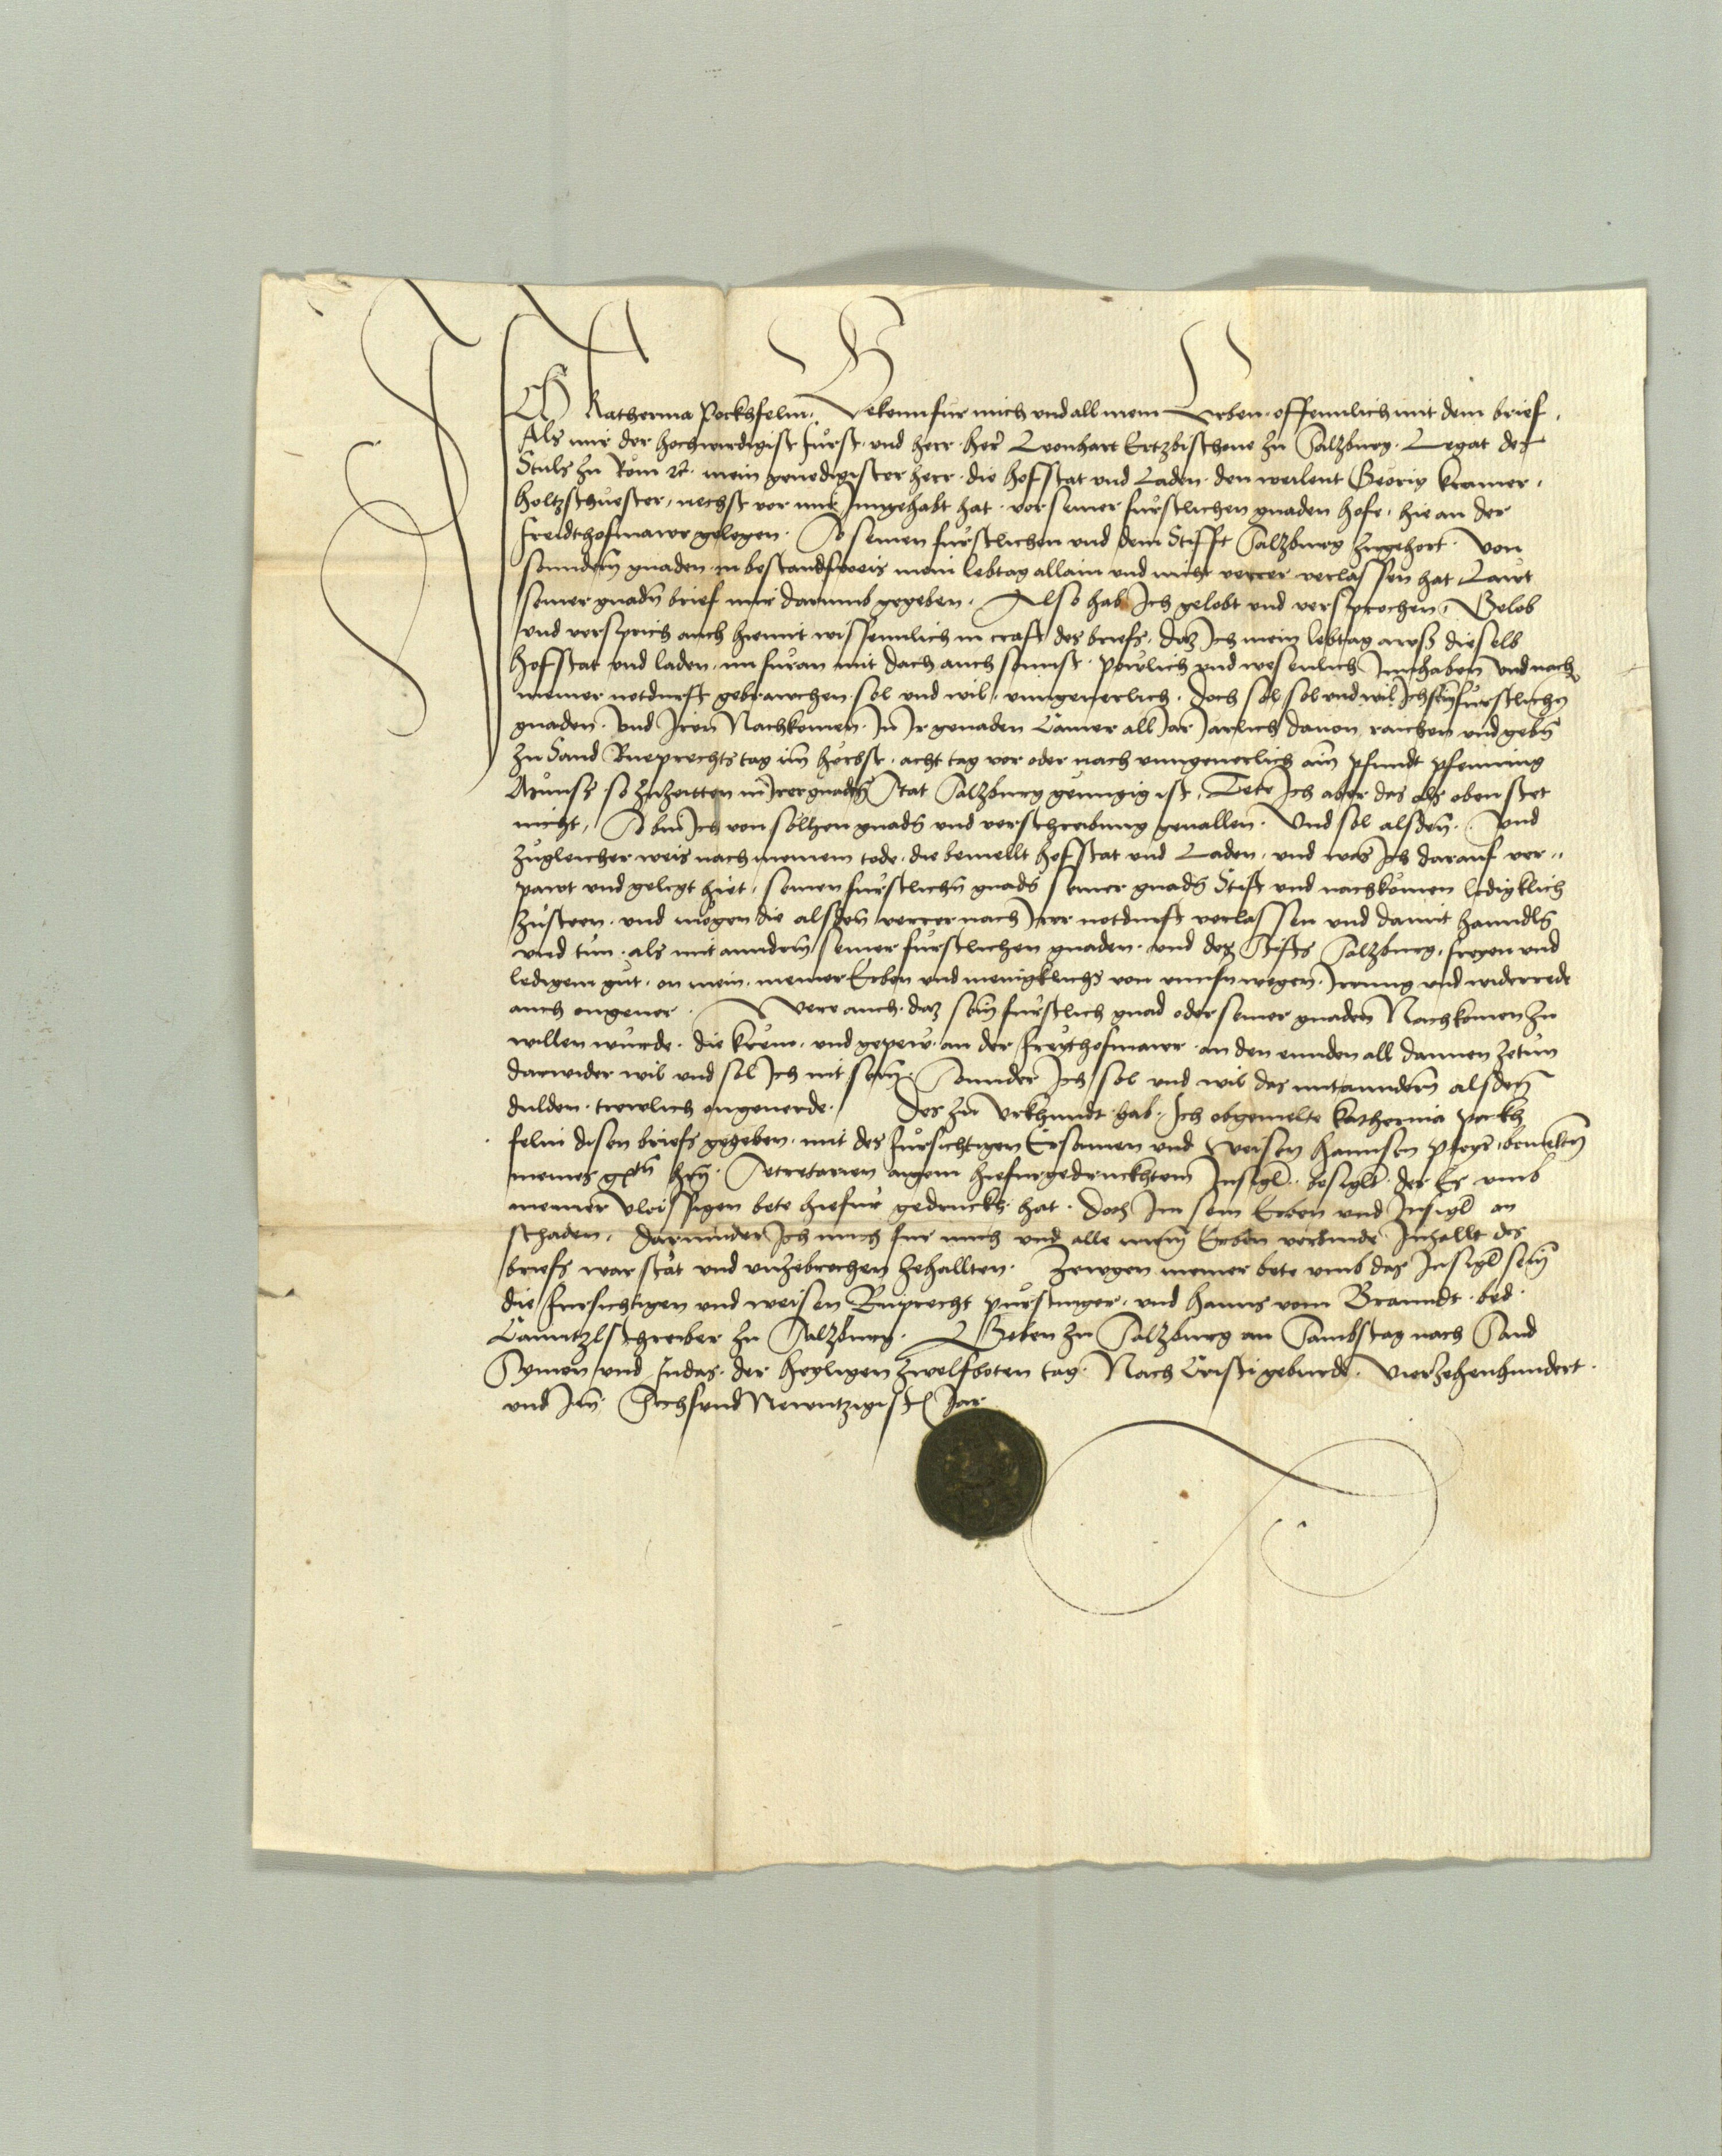 ICH Katherina Pockhselin. Bekenn fur mich und all mein Erben. offennlich mit dem brief.
Als mir der hochwirdigist Fürst. und herr. her Leonhart Ertzbischoue zu Saltzburg. Legat des
Stuls zu Rom etc. mein genedigister herr. die hofstat und Laden. den weilent Georig kramer.
holtzschuester, nechst vor mir Inngehabt hat. vor seiner fürstlichen gnaden hofe, hie an der
freidthofmawr gelegen. So seinen fürstlichen und dem Stifft Saltzburg zugehort. Von
sunndern gnaden in bestandsweis mein lebtag allain und nicht verrer verlassen hat Lawt
seiner gnadn brief mir darumb gegeben. Also hab Ich gelobt und versprochen, Gelob
und versprich auch hiemit wissenntlich in crafft des briefs, daz Ich mein lebtag awss dieselb
hofstat und laden, nu füran mit dach auch sunnst. pewlich und wesenlich Innhaben und nach
meiner notdurft gebrawchen sol und wil, ungeuerlich. Doch sol sol und wil Ich sein fürstlichn
gnaden. und Iren Nachkomen. In Ir genaden Camer all Jar Jarlich dauon raichen und gebn
zu Sand Rueprechts tag im herbst. acht tag vor oder nach ungeuerlich ain pfundt pfenning
Münss so zuzeitten in Irer gnaden Stat Saltzburg genngig ist. Tete Ich aber das als oben stet
nicht, So bin Ich von solhen gnadn und verschreibung geuallen. Und sol alsden. und
zugleicher weis nach meinem tode, die bemellt hofstat und Laden, und was Ich darauf ver"
pawt und gelegt hiet, seinen fürstlichn gnadn seiner gnadn Stift und nachkomen ledigklich
zusteen. und mögen die alsden verrer nach Irer notdurft verlassen und damit hanndln
und tun. als mit anndern seiner fürstlichen gnaden. und des Stifts Saltzburg, freyen und
ledigem gut, on mein. meiner Erben und menigklichs von unnsern wegen. Irrung und widerrede
auch ongeuer. Were auch. daz sein fürstlich gnad oder seiner gnaden Nachkomen zu
willen wurde. die krem. und gepew. an der freythofmawr. an den ennden all dannen zetun
darwider wil und sol Ich nit sein. Sonnder Ich sol und wil das mitanndern alsden
dulden. trewlich ongeuerde. Des zu Urkhundt hab. Ich obgemelte Katherina Pockh
selin disen briefs gegeben. mit des fürsichtigen Ersamen und Weisen hannsen bemelten
meines gstn hrn. Secretarien aigem hiefurgedruckhtem Insigl. besiglt. der Er umb
meiner vleissigen bete hiefür gedruckht hat. doch Im sein Erben und Insigl on
schaden. Darunnder Ich mich fur mich und alle mein Erben verbinde Inhallt des
briefs war stät und unzebrochen zehallten. Zewgen meiner bete umb das Insigl sein
die fursichtigen und weisen Rueprecht pürstinger, und hanns vom Branndt. bed.
Cantzlschreiber zu Saltzburg. Geben zu Saltzburg an Sambstag nach Sand
Symon und Judas. der heyligen zwelfboten tag. Nach Cristi geburde. Vierzehenhundert.
und Im. Sechsund Newntzigisten Jar